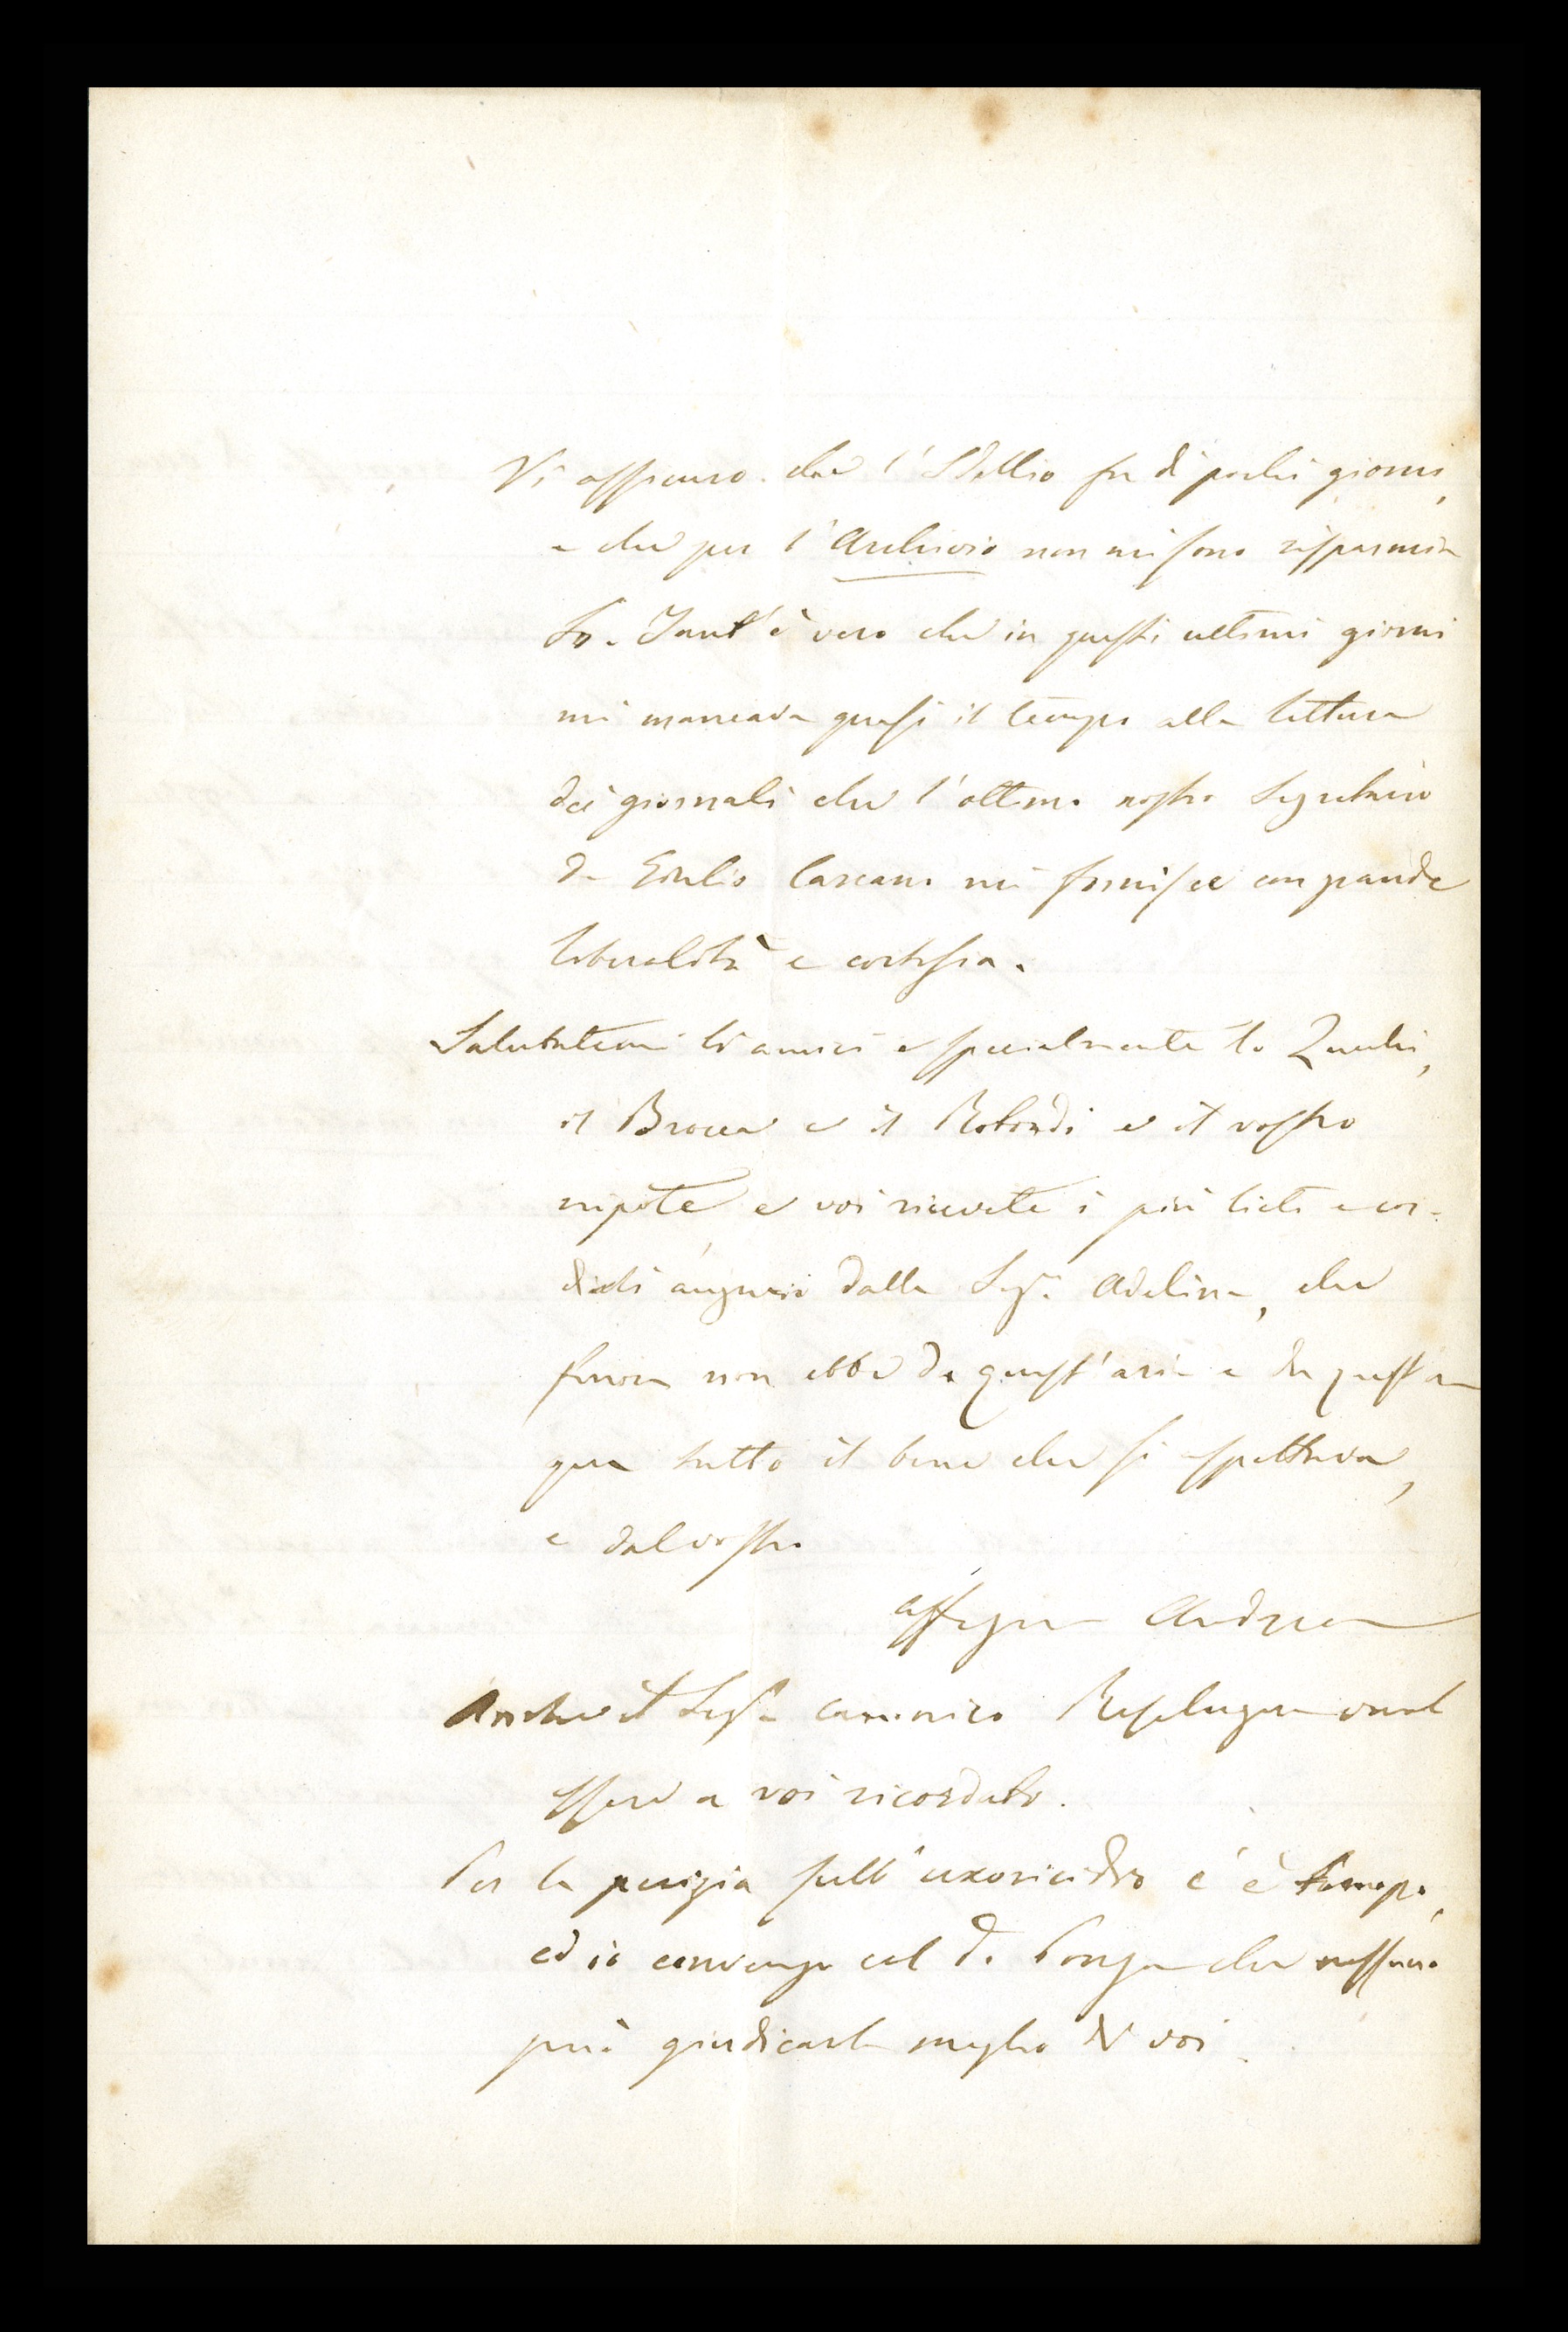 Vi assicuro che l'Idillio fu di pochi giorni,
e che per l'Archivio non mi sono risparmia
to. Tant'è vero che in questi ultimi giorni
mi mancava quasi il tempo alla lettura
dei giornali che l'ottimo nostro Segretario
Dr Giulio Carcano mi fornisce con grande
liberalità e cortesia.
Salutatemi li amici e specialmente lo Zucchi,
il Brocca e il Rotondi e il vostro
nipote e voi ricevete i più lieti e cor-
diali augurii dalla Sigra Adelina, che
finora non ebbe da quest'aria e da quest'a
qua tutto il bene che si aspettava,
e dal vostro
Andrea
Anche il Sigr canonico vuol
essere a voi ricordato.
Per la perizia sull'uxoricidio c'è tempo,
ed io convengo col Dr che nessuno
può giudicarla meglio di voi.